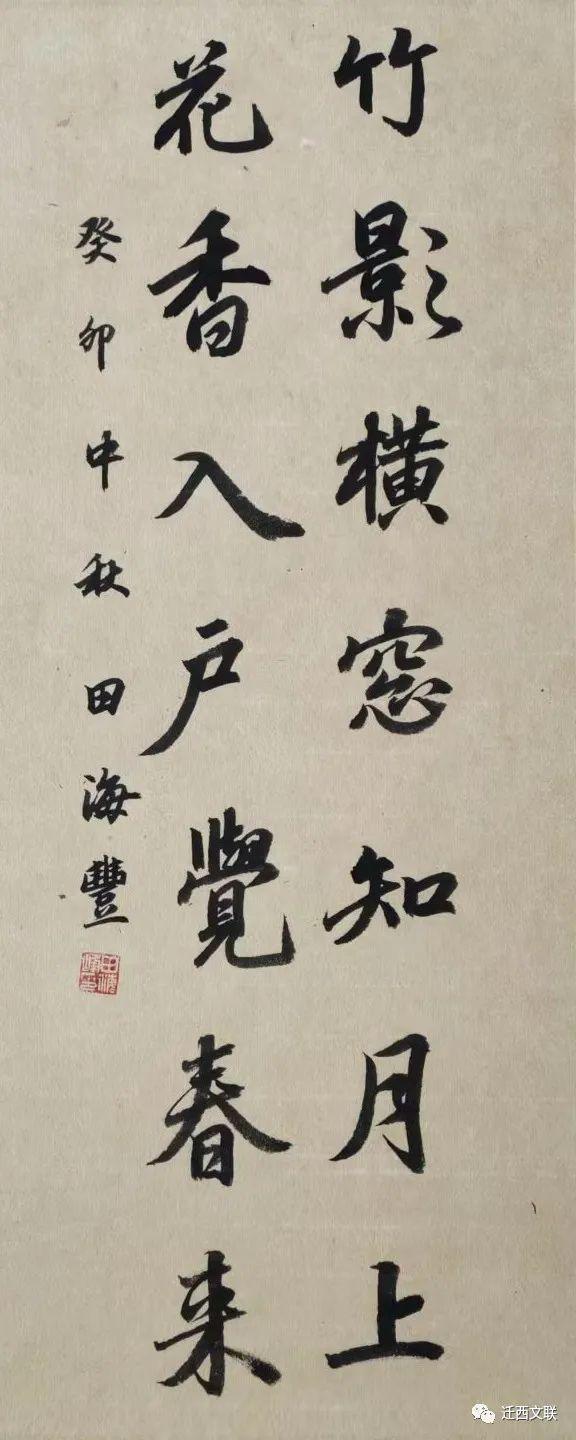 竹影横窓知月上
花香入户覺春来
癸卯中秋田海豐
迁西文联